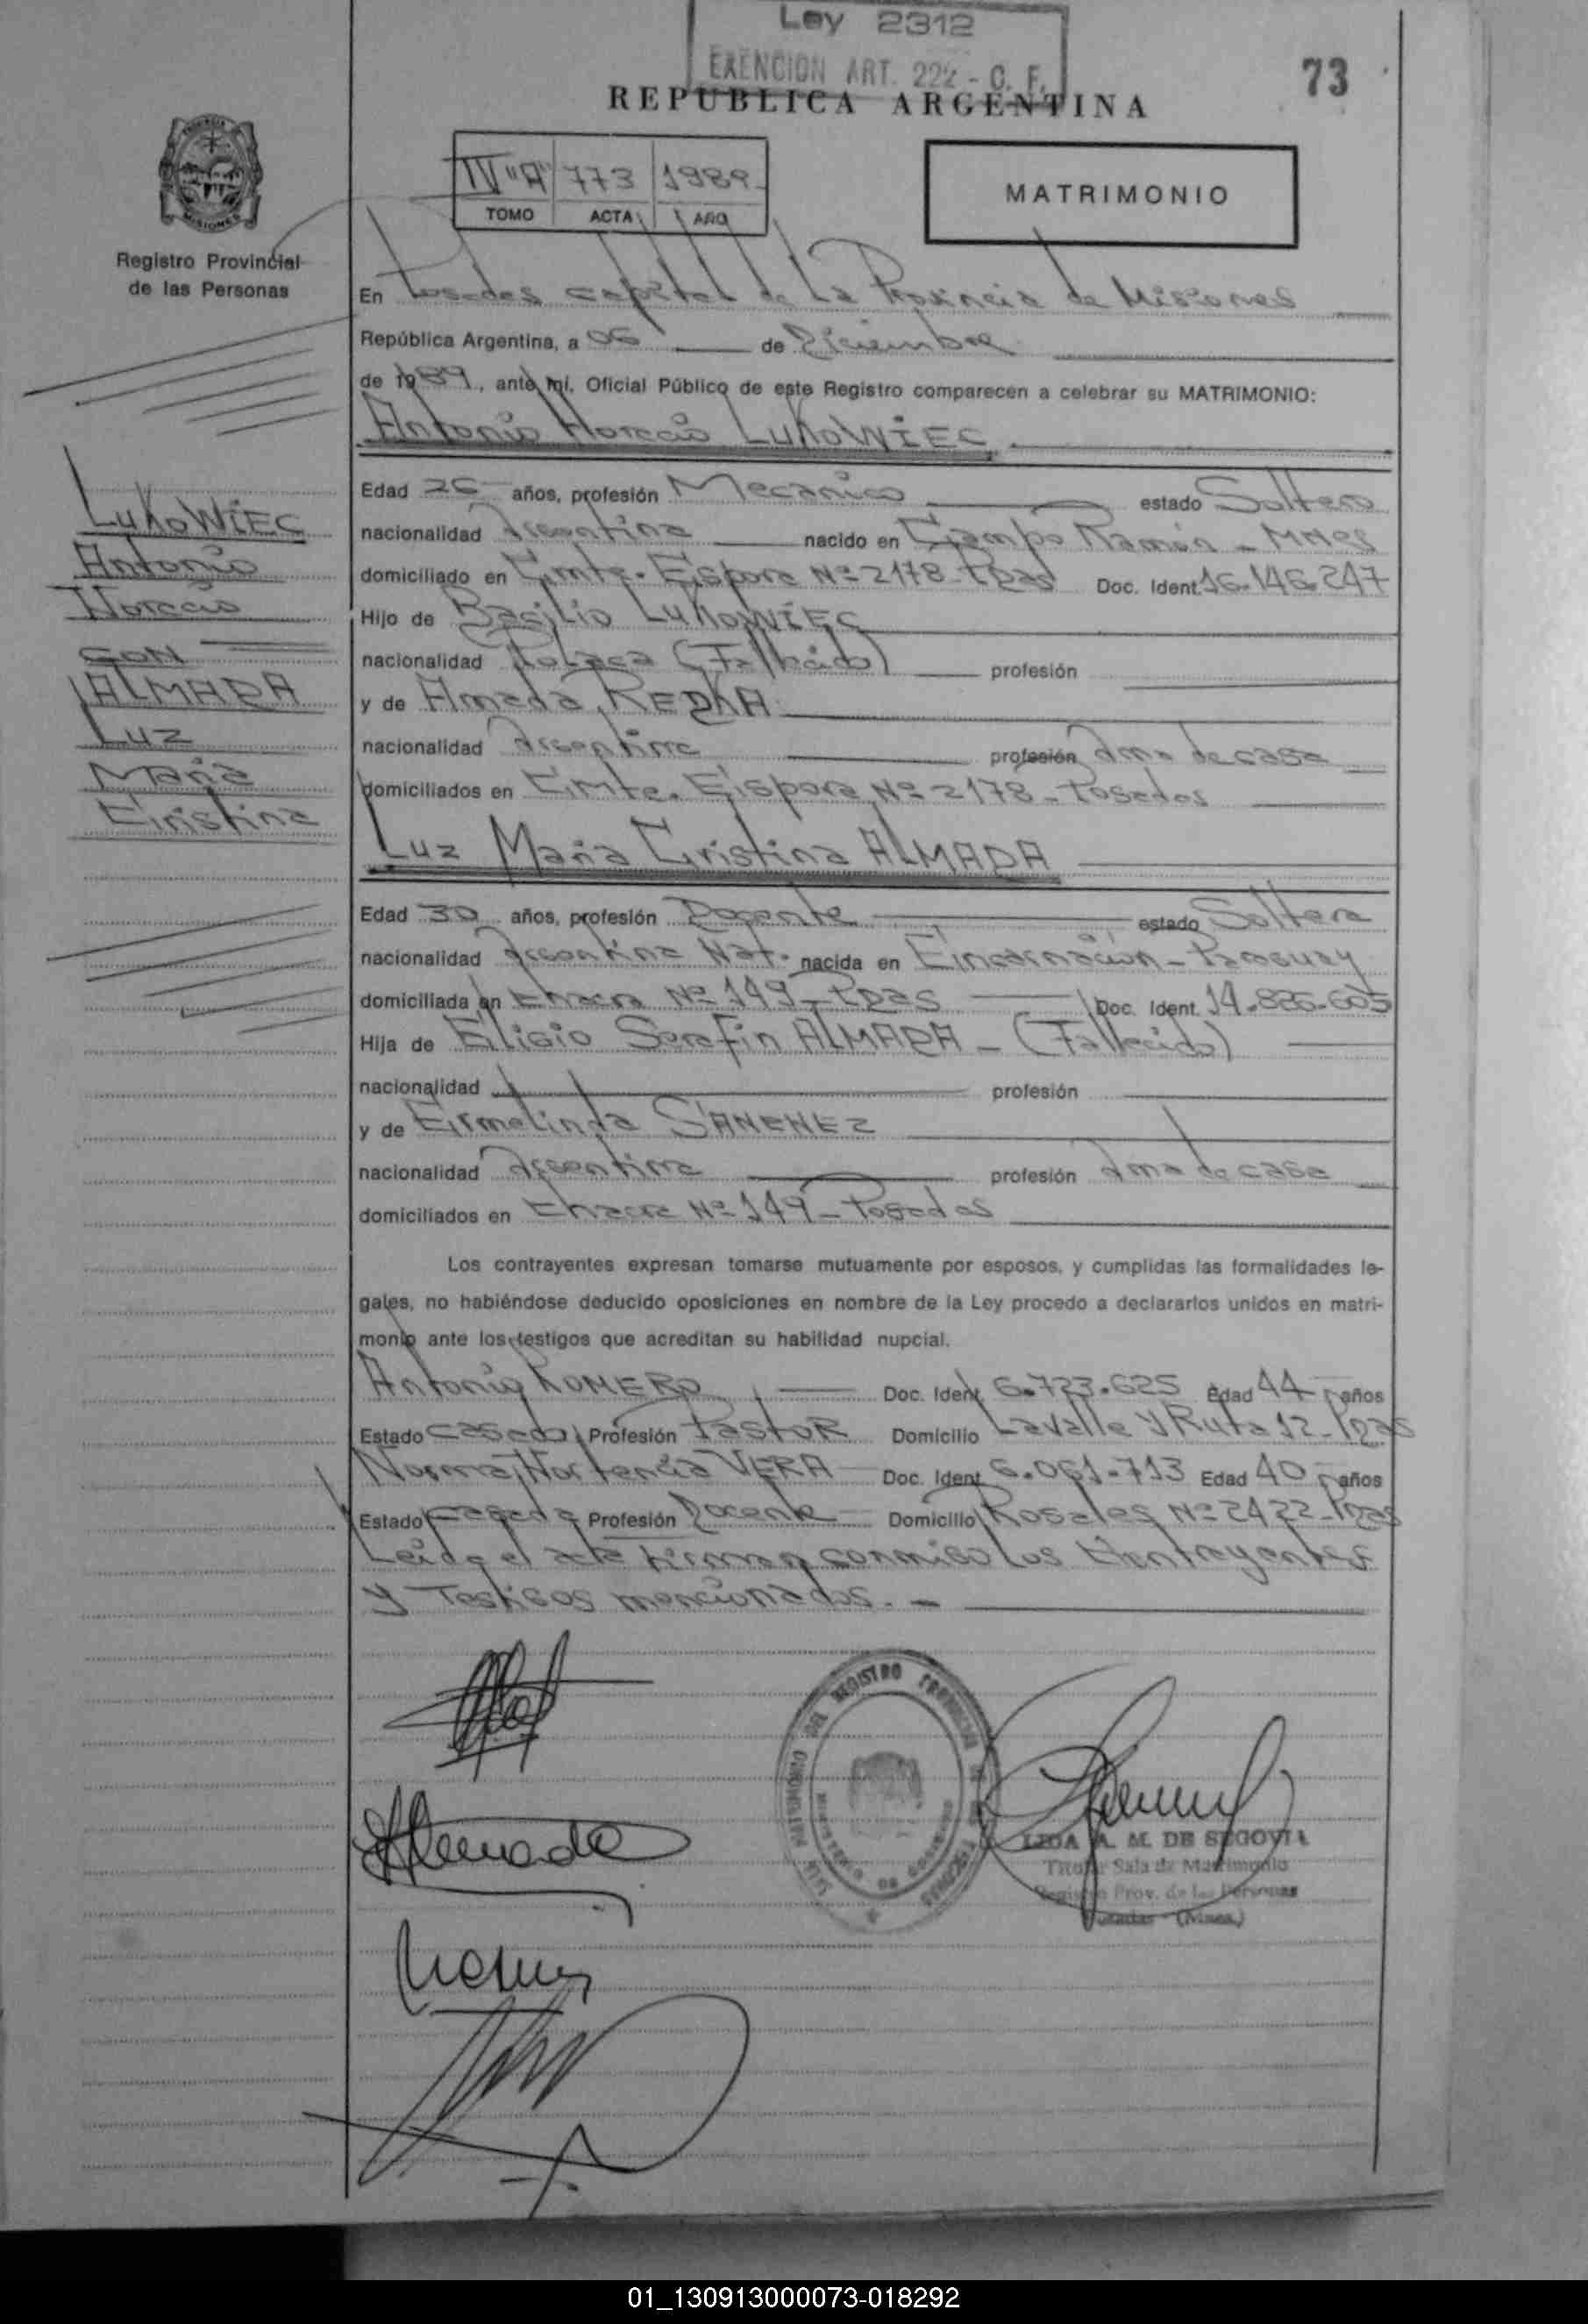 Ley 2312
EXENCION ART. 222 - C. F.
73
REPUBLICA ARGENTINA
IV "A" 773 1989
TOMO ACTA AÑO
MATRIMONIO
Registro Provincial
de las Personas
En Posadas capital de la Provincia de Misiones
República Argentina, a 06 de Diciembre
de 1989, ante mí, Oficial Público de este Registro comparecen a celebrar su MATRIMONIO:
Antonio Horacio LUKOWIEC
LUKOWIEC
Antonio
Horacio
CON
ALMADA
Luz
María
Cristina
Edad 26 años, profesión Mecanico estado Soltero
nacionalidad Argentina nacido en Campo Ramón - Mnes
domiciliado en Cmte. Espora Nº 2178 - Pdas Doc. Ident. 16.146.247
Hijo de Basilio LUKOWIEC
nacionalidad Polaca (Fallecido) profesión
y de Amada
nacionalidad Argentina profesión Ama de casa
domiciliados en Cmte. Espora Nº 2178 - Posadas
Luz María Cristina ALMADA
Edad 30 años, profesión Docente estado Soltera
nacionalidad Argentina Nat. nacida en Encarnación - Paraguay
domiciliada en Chacra Nº 149 - Pdas Doc. Ident. 14.826.605
Hija de Eligio Serafin ALMADA - (Fallecido)
nacionalidad profesión
y de Ermelinda SANCHEZ
nacionalidad Argentina profesión Ama de casa
domiciliados en Chacra Nº 149 - Posadas
Los contrayentes expresan tomarse mutuamente por esposos, y cumplidas las formalidades le-
gales, no habiéndose deducido oposiciones en nombre de la Ley procedo a declararlos unidos en matri-
monio ante los testigos que acreditan su habilidad nupcial.
Antonio ROMERO Doc. Ident. 6.723.625 Edad 44 años
Estado Casado Profesión Pastor Domicilio Lavalle y Ruta 12 - Pdas
Norma Hortencia VERA Doc. Ident. 6.061.713 Edad 40 años
Estado Casada Profesión Docente Domicilio Rosales Nº 2422 - Pdas
Leida el acta firman conmigo los Contrayentes
y Testigos mencionados. -
Almada
A. M. DE SEGOVIA
Titular Sala de Matrimonio
Registro Prov. de las Personas
Posadas - (Mnes.)
01_130913000073-018292